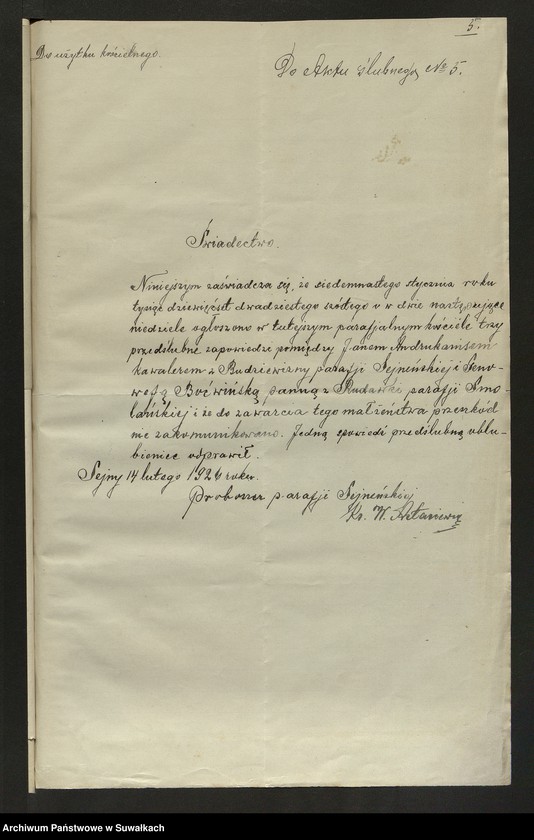 5.
Do użytku kościelnego.
Do Aktu ślubnego № 5.
Świadectwo.
Niniejszym zaświadcza się, że siedemnastego stycznia roku
tysiąc dziewięćset dwadziestego szóstego i w dwie następujące
niedziele ogłoszono w tutejszym parafjalnym kościele trzy
przedślubne zapowiedzi pomiędzy Janem Andrukanisem
kawalerem z Radziewizny parafji Sejneńskiej i Geno-
wefą Boćwińską panną z Rudawki parafji Smo-
lańskiej i że do zawarcia tego małżeństwa przeszkód
nie zakomunikowano. Jedną spowiedź przedślubną oblu-
bieniec odprawił.
Sejny 14 lutego 1926 roku.
Proboszcz parafji Sejneńskiej
Ks. W.
Archiwum Państwowe w Suwałkach